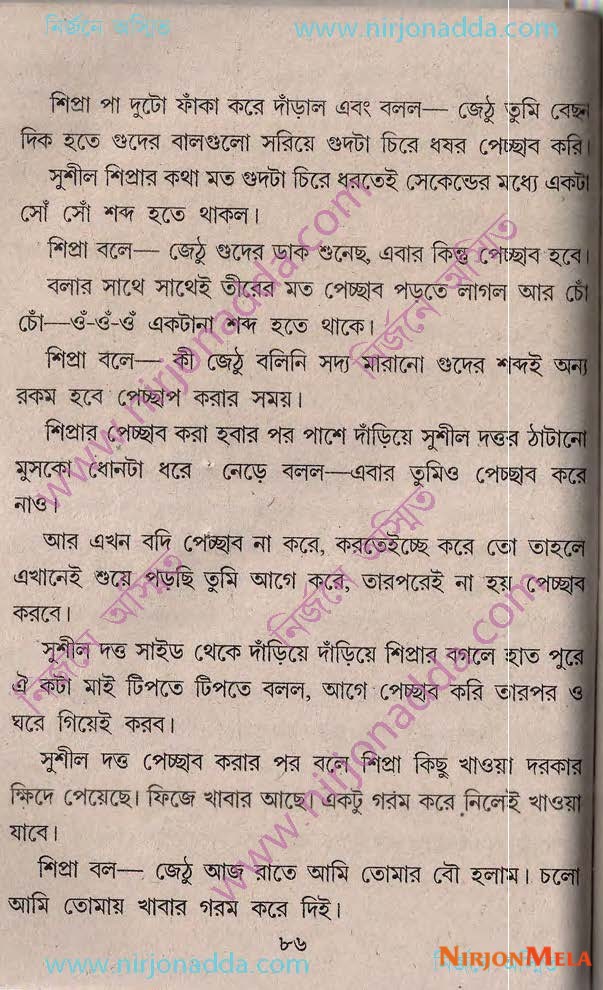 নির্জনে অস্মিত www.nirjonadda.com
শিপ্রা পা দুটো ফাঁকা করে দাঁড়াল এবং বলল— জেঠু তুমি বেছন
দিক হতে গুদের বালগুলো সরিয়ে গুদটা চিরে ধযর পেচ্ছাব করি।
সুশীল শিপ্রার কথা মত গুদটা চিরে ধরতেই সেকেন্ডের মধ্যে একটা
সোঁ সোঁ শব্দ হতে থাকল।
শিপ্রা বলে— জেঠু গুদের ডাক শুনেছ, এবার কিন্তু পেচ্ছাব হবে।
বলার সাথে সাথেই তীরের মত পেচ্ছাব পড়তে লাগল আর চোঁ
চোঁ—ওঁ-ওঁ-ওঁ একটানা শব্দ হতে থাকে।
শিপ্রা বলে— কী জেঠু বলিনি সদ্য মারানো গুদের শব্দই অন্য
রকম হবে পেচ্ছাপ করার সময়।
শিপ্রার পেচ্ছাব করা হবার পর পাশে দাঁড়িয়ে সুশীল দত্তর ঠাটানো
মুসকো ধোনটা ধরে নেড়ে বলল—এবার তুমিও পেচ্ছাব করে
নাও।
আর এখন বদি পেচ্ছাব না করে, করতেইচ্ছে করে তো তাহলে
এখানেই শুয়ে পড়ছি তুমি আগে করে, তারপরেই না হয় পেচ্ছাব
করবে।
সুশীল দত্ত সাইড থেকে দাঁড়িয়ে দাঁড়িয়ে শিপ্রার বগলে হাত পুরে
ঐ কটা মাই টিপতে টিপতে বলল, আগে পেচ্ছাব করি তারপর ও
ঘরে গিয়েই করব।
সুশীল দত্ত পেচ্ছাব করার পর বলে শিপ্রা কিছু খাওয়া দরকার
ক্ষিদে পেয়েছে। ফিজে খাবার আছে। একটু গরম করে নিলেই খাওয়া
যাবে।
শিপ্রা বল— জেঠু আজ রাতে আমি তোমার বৌ হলাম। চলো
আমি তোমায় খাবার গরম করে দিই।
৮৬
www.nirjonadda.com
NIRJONMELA